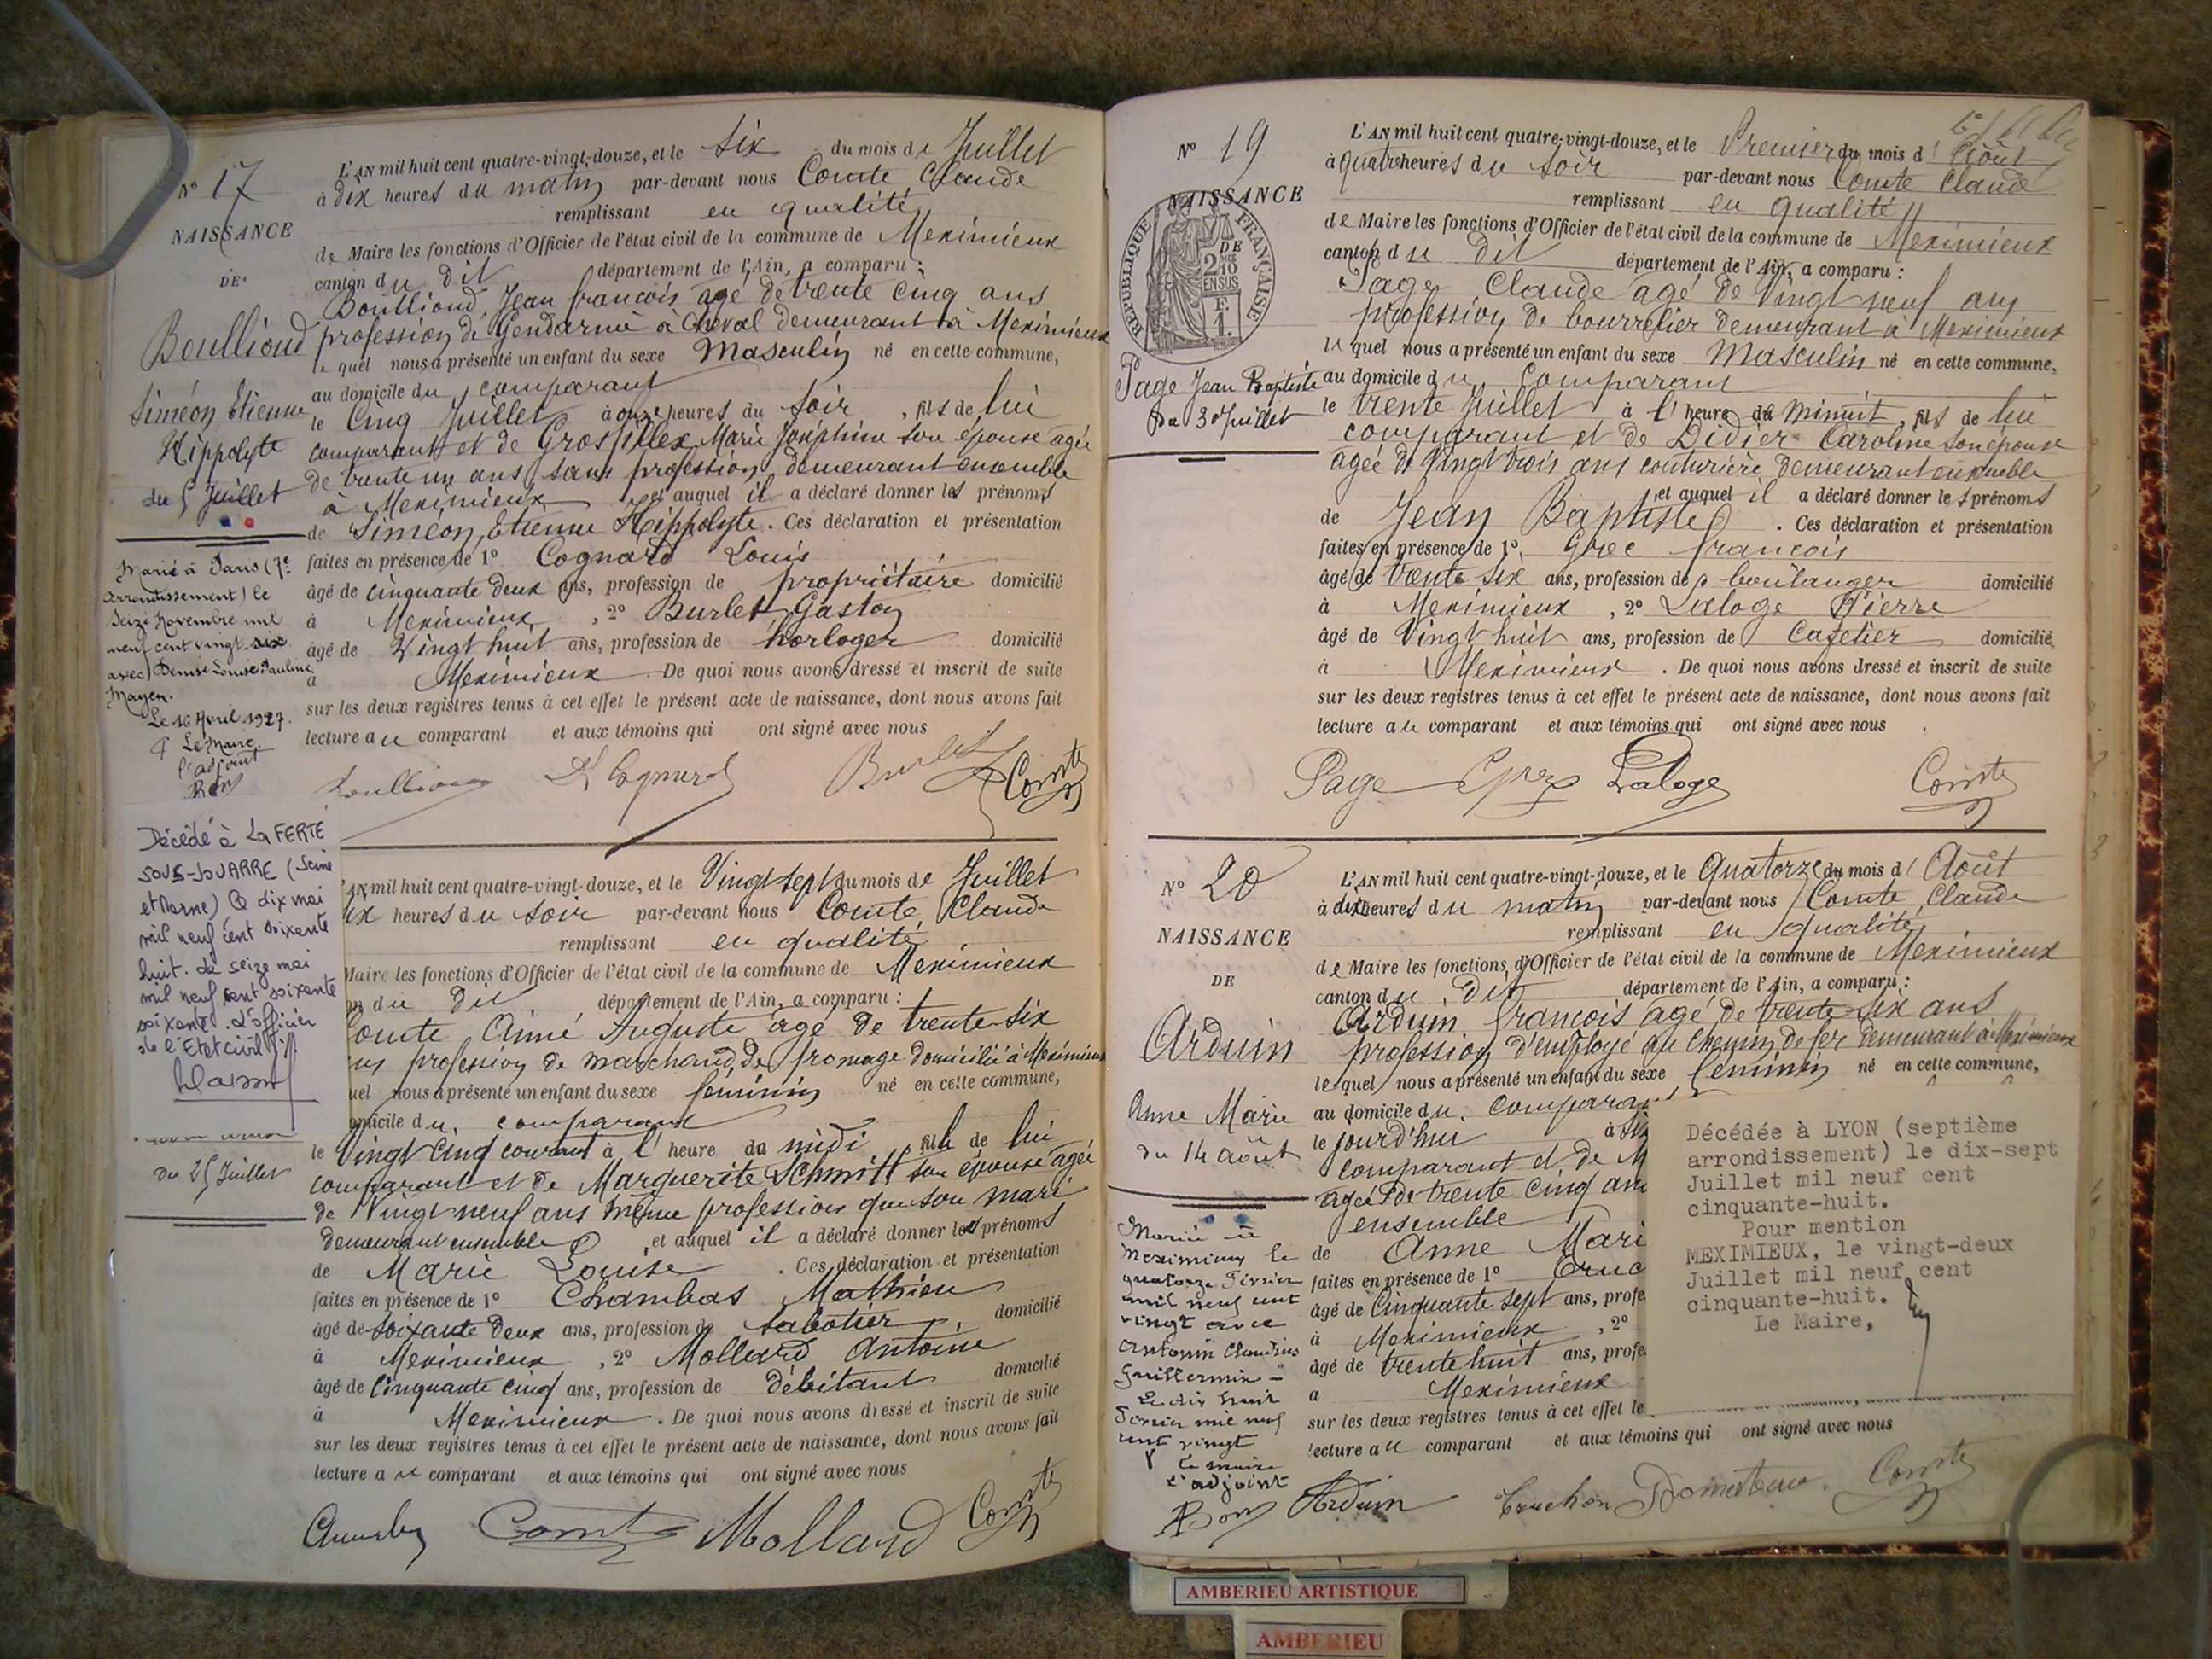 N° 17
NAISSANCE
DE
Boullioud
Siméon Etienne
Hippolyte
du 5 Juillet
Marié à Paris (7e
arrondissement) le
seize Novembre mil
neuf cent vingt six
avec Denise Louise Pauline
Mayen.
Le 16 Avril 1927.
Le Maire
l'adjoint
Décédé à La FERTE
SOUS-JOUARRE (Seine
et Marne) le dix mai
mil neuf cent soixante
huit. Le seize mai
mil neuf cent soixante
soixante. L'officier
de l'Etat civil
L'AN mil huit cent quatre-vingt-douze, et le six du mois de Juillet
à dix heures du matin par-devant nous Comte Claude
remplissant en qualité
de Maire les fonctions d'Officier de l'état civil de la commune de Meximieux
canton du dit département de l'Ain, a comparu :
Boullioud, Jean francois agé de trente cinq ans
profession de Gendarme à cheval demeurant à Meximieux
le quel nous a présenté un enfant du sexe Masculin né en cette commune,
au domicile du comparant
le Cinq Juillet à onze heures du soir, fils de lui
comparant et de Grosfillex Marie Joséphine son épouse agée
de trente un ans sans profession demeurant ensemble
à Meximieux et auquel il a déclaré donner les prénoms
de Siméon, Etienne Hippolyte. Ces déclaration et présentation
faites en présence de 1° Cognard Louis
âgé de cinquante deux ans, profession de propriétaire domicilié
à Meximieux, 2° Burlet Gaston
âgé de Vingt huit ans, profession de horloger domicilié
à Meximieux. De quoi nous avons dressé et inscrit de suite
sur les deux registres tenus à cet effet le présent acte de naissance, dont nous avons fait
lecture au comparant et aux témoins qui ont signé avec nous
Boullioud L Cognard Burlet Comte
du 25 Juillet
AN mil huit cent quatre-vingt-douze, et le Vingt sept du mois de Juillet
ix heures du soir par-devant nous Comte Claude
remplissant en qualité
Maire les fonctions d'Officier de l'état civil de la commune de Meximieux
on du dit département de l'Ain, a comparu :
Comte Aimé Auguste agé de trente six
ans profession de marchand de fromage domicilié à Meximieux
uel nous a présenté un enfant du sexe féminin né en cette commune,
omicile du comparant
le Vingt cinq courant à l'heure de midi, fille de lui
comparant et de Marguerite Schmitt son épouse agée
de Vingt neuf ans même profession que son mari
demeurant ensemble, et auquel il a déclaré donner les prénoms
de Marie Louise. Ces déclaration et présentation
faites en présence de 1° Chambas Mathieu
âgé de soixante deux ans, profession de sabotier, domicilié
à Meximieux, 2° Mollard Antoine
âgé de Cinquante cinq ans, profession de débitant domicilié
à Meximieux. De quoi nous avons dressé et inscrit de suite
sur les deux registres tenus à cet effet le présent acte de naissance, dont nous avons fait
lecture au comparant et aux témoins qui ont signé avec nous
Comte Mollard Comte
N° 19
NAISSANCE
RÉPUBLIQUE FRANÇAISE
2 DES 10 EN SUS
F.
1.
Page Jean Baptiste
du 30 Juillet
L'AN mil huit cent quatre-vingt-douze, et le Premier du mois d'Août
à quatre heures du soir par-devant nous Comte Claude
remplissant en qualité
de Maire les fonctions d'Officier de l'état civil de la commune de Meximieux
canton du dit département de l'Ain, a comparu :
Page Claude agé de Vingt neuf ans
profession de bourrelier demeurant à Meximieux
le quel nous a présenté un enfant du sexe Masculin né en cette commune,
au domicile du comparant
le trente Juillet à l'heure de minuit, fils de lui
comparant et de Didier Caroline son épouse
agée de Vingt trois ans couturière demeurant ensemble
et auquel il a déclaré donner les prénoms
de Jean Baptiste. Ces déclaration et présentation
faites en présence de 1° francois
âgé de trente six ans, profession de boulanger domicilié
à Meximieux, 2° Laloge Pierre
âgé de Vingt huit ans, profession de Cafetier domicilié
à Meximieux. De quoi nous avons dressé et inscrit de suite
sur les deux registres tenus à cet effet le présent acte de naissance, dont nous avons fait
lecture au comparant et aux témoins qui ont signé avec nous
Page Laloge Comte
N° 20
NAISSANCE
DE
Arduin
Anne Marie
du 14 août
Mariée à
Meximieux le
quatorze Février
mil neuf cent
vingt avec
Antonin Claudius
Guillermin
Le dix huit
Février mil neuf
cent vingt
Le maire
l'adjoint
L'AN mil huit cent quatre-vingt-douze, et le Quatorze du mois d'Août
à dix heures du matin par-devant nous Comte Claude
remplissant en qualité
de Maire les fonctions d'Officier de l'état civil de la commune de Meximieux
canton du dit département de l'Ain, a comparu :
Arduin francois agé de trente six ans
profession d'employé au Chemin de fer demeurant à Meximieux
lequel nous a présenté un enfant du sexe féminin né en cette commune,
au domicile du comparant
le jourd'hui à
comparant et de M
agée de trente cinq ans
ensemble
de Anne Mari
faites en présence de 1° Cruc
âgé de Cinquante sept ans, profe
à Meximieux, 2°
âgé de trente huit ans, profe
à Meximieux
sur les deux registres tenus à cet effet le
lecture au comparant et aux témoins qui ont signé avec nous
Arduin Cruchon Comte
Décédée à LYON (septième
arrondissement) le dix-sept
Juillet mil neuf cent
cinquante-huit.
Pour mention
MEXIMIEUX, le vingt-deux
Juillet mil neuf cent
cinquante-huit.
Le Maire,
AMBERIEU ARTISTIQUE
AMBERIEU